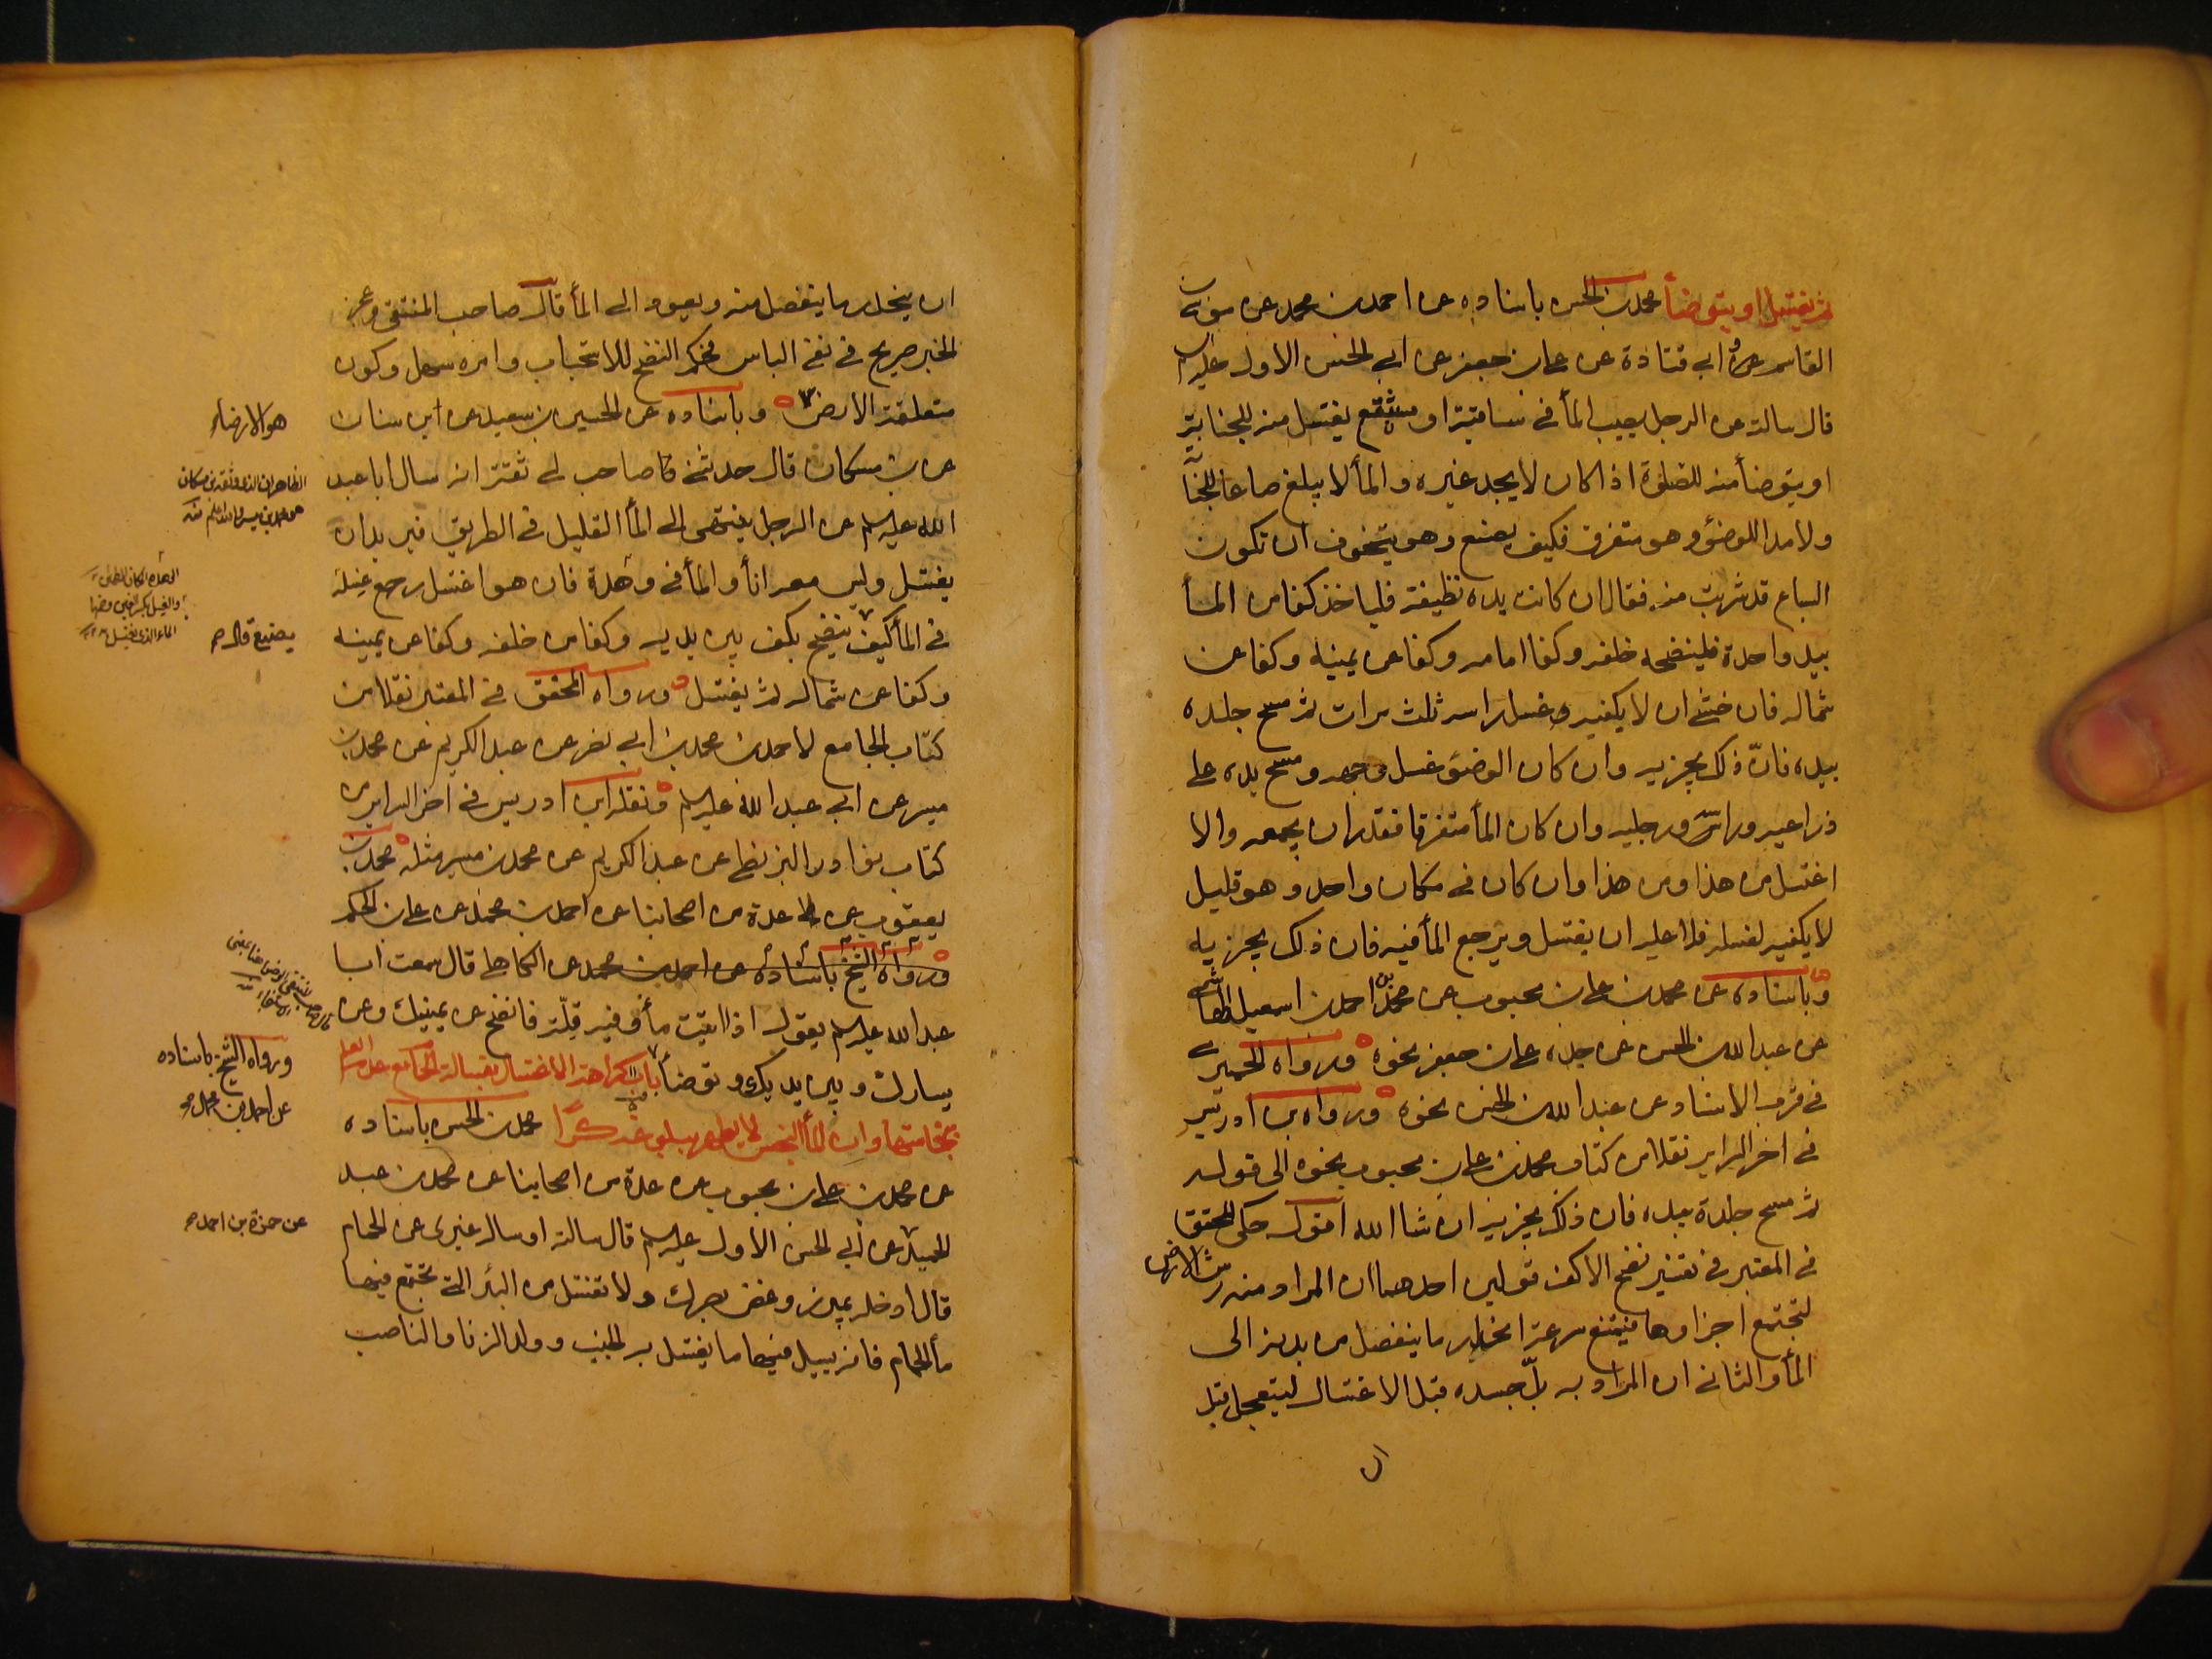 ثم يغتسل او يتوضأ محمد بن الحسن باسناده عن احمد بن محمد عن موسى بن
القاسم عن ابي قتادة عن علي بن جعفر عن ابي الحسن الاول عليه السلام
قال سالته عن الرجل يصيب المأ في ساقية او مستنقع يغتسل منه للجنابة
او يتوضأ منه للصلوة اذا كان لا يجد غيره والمأ لا يبلغ صاعا للجنابة
ولا مدا للوضوء وهو متفرق فكيف يصنع وهو يتخوف ان تكون
السباع قد شربت منه فقال ان كانت يده نظيفة فلياخذ كفا من المأ
بيد واحدة فلينضحه خلفه وكفا امامه وكفا عن يمينه وكفا عن
شماله فان خشي ان لا يكفيه غسل راسه ثلث مرات ثم مسح جلده
بيده فانّ ذلك يجزيه وان كان الوضوء غسل وجهه ومسح يده على
ذراعيه وراسه ورجليه وان كان المأ متفرقا فقدر ان يجمعه والا
اغتسل من هذا ومن هذا وان كان في مكان واحد وهو قليل
لا يكفيه لغسله فلا عليه ان يغتسل ويرجع المأ فيه فان ذلك يجزيه
وباسناده عن محمد بن علي بن محبوب عن محمد بن احمد بن اسمعيل الهاشمي
عن عبد الله بن الحسن عن جده علي بن جعفر نحوه ورواه الحميري
في قرب الاسناد عن عبد الله بن الحسن نحوه ورواه بن ادريس
في اخر السراير نقلا من كتاب محمد بن علي بن محبوب نحوه الى قوله
ثم مسح جلده بيده فان ذلك يجزيه ان شا الله اقول حكى المحقق
في المعتبر في تفسير نضح الاكف قولين احدهما ان المراد منه رش الارض
لتجتمع اجزاوها فيمتنع سرعة انحدار ما ينفصل من بدنه الى
المأ والثاني ان المراد به بلّ جسده قبل الاغتسال ليتعجل قبل
ان ينحدر ما ينفصل منه ويعود الى المأ قال صاحب المنتقى وعجز
الخبر صريح في نفي الباس فحكم النضح للاستحباب وامره سهل وكون
متعلقة الارض وباسناده عن الحسين بن سعيد عن ابن سنان
عن بن مسكان قال حدثني صاحب لي ثقة انه سال ابا عبد
الله عليه السلم عن الرجل ينتهى الى المأ القليل في الطريق فيريد ان
يغتسل وليس معه انأ والمأ في وهدة فان هو اغتسل رجع غسله
في المأ كيف ينضح بكف بين يديه وكفا من خلفه وكفا عن يمينه
وكفا عن شماله ثم يغتسل ورواه المحقق في المعتبر نقلا من
كتاب الجامع لاحمد بن محمد بن ابي نصر عن عبد الكريم عن محمد بن
ميسر عن ابي عبد الله عليه السلم ونقله ابن ادريس في اخر السراير من
كتاب نوادر البزنطي عن عبد الكريم عن محمد بن ميسر مثله محمد بن
يعقوب عن عدة من اصحابنا عن احمد بن محمد عن علي بن الحكم
ورواه الشيخ باسناده عن احمد بن محمد عن الكاهلي قال سمعت ابا
عبد الله عليه السلم يقول اذا اتيت مأ وفيه قلّة فانضح عن يمينك وعن
يسارك وبين يديك وتوضأ باب كراهة الاغتسال بغسالة الحمام مع عدم العلم
بنجاستها وان المأ النجس لا يطهر ببلوغه كرًا محمد بن الحسن باسناده
عن محمد بن علي بن محبوب عن عدة من اصحابنا عن محمد بن عبد
الحميد عن ابي الحسن الاول عليه السلم قال سالته او ساله غيري عن الحمام
قال ادخله بميزر وغض بصرك ولا تغتسل من البئر التي تجتمع فيها
مأ الحمام فانه يسيل فيها ما يغتسل به الجنب وولد الزنا والناصب
هو الارض
الظاهر ان الذي وثقه بن مسكان
هو محمد بن ميسر والله اعلم منه
الوهدة المكان المطمئن
والغسل بكسر الغين وضمها
الماء الذي يغتسل به
يصنع قال صح
ورواه الشيخ باسناده
عن احمد بن محمد صح
عن حمزة بن احمد صح